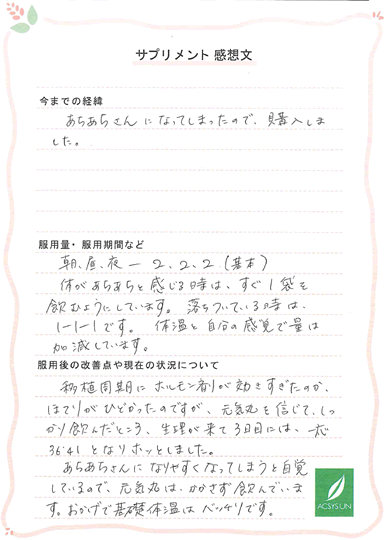 サプリメント 感想文
今までの経緯
あちあちさん になってしまったので、購入しま
した。
服用量・服用期間など
朝、昼、夜 ー 2、2、2 (基本)
体があちあちと感じる時は、すぐ1袋を
飲むようにしています。 落ちついている時は、
1-1-1です。 体温と自分の感覚で量は
加減しています。
服用後の改善点や現在の状況について
移植周期に ホルモン剤が効きすぎたのか、
ほてりがひどかったのですが、元気丸を信じて、しっ
かり飲んだところ、生理が来て3日目には、一応
36.41 となりホッとしました。
あちあちさんに なりやすくなってしまうと自覚
しているので、元気丸は、かかさず飲んでいま
す。おかげで基礎体温は バッチリです。
ACSYSUN